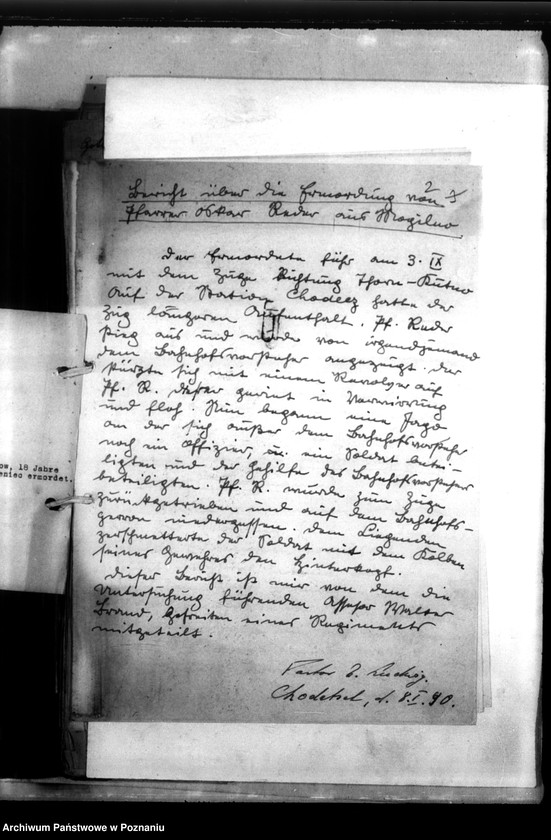 2
Bericht über die Ermordung von
Pfarrer Oskar Reder aus Mogilno
Der Ermordete fuhr am 3. IX
mit dem Zuge Richtung Thorn-Kutno
Auf der Station Chodecz hatte der
Zug längeren Aufenthalt. Pf. Reder
stieg aus und wurde von irgendjemand
dem Bahnhofsvorsteher angezeigt. Der
stürzte sich mit einem Revolver auf
Pf. R. Dieser geriet in Verwirrung
und floh. Nun begann eine Jagd
an der sich außer dem Bahnhofsvorsteher
noch ein Offizier, u. ein Soldat betei-
ligten und der Gehilfe des Bahnhofsvorstehers
beteiligten. Pf. R. wurde zum Zuge
zurückgetrieben und auf dem Bahnhofs-
niedergeschossen. Dem Liegenden
zerschmetterte der Soldat mit dem Kolben
seines Gewehres den Hinterkopf.
Dieser Bericht ist mir von dem die
Untersuchung führenden Assessor Walter
Brand, Gefreiten eines Regiments
mitgeteilt.
Pastor
d. 8.I.40.
ow, 18 Jahre
eniec ermordet.
Archiwum Państwowe w Poznaniu